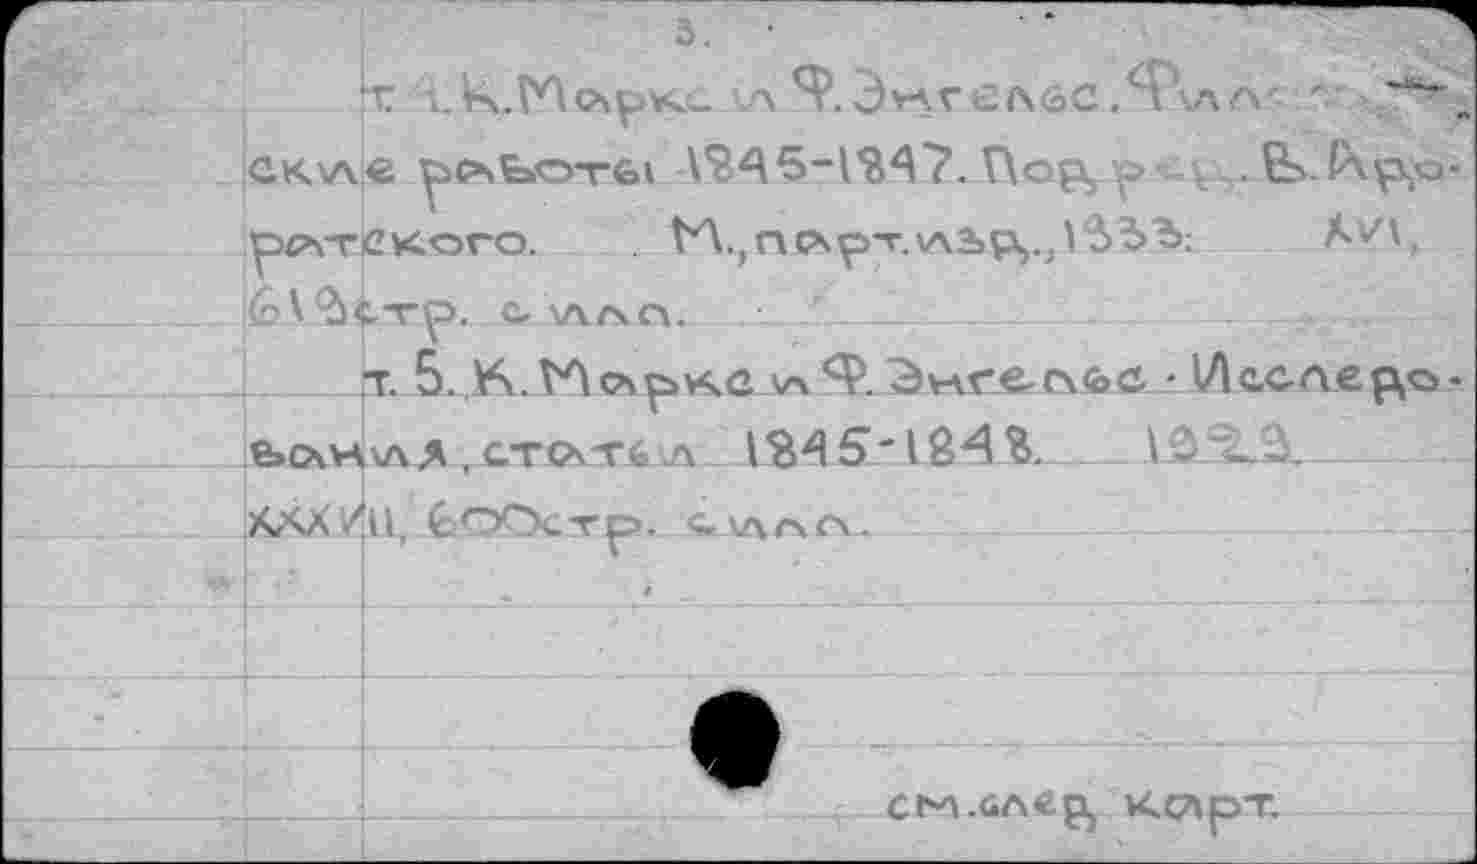 3.
т. К.Маркс и Ф.Энгельс.Фил
ские работы 1845-1847. Под ред. В.Адо-
ратского. М.,парт.изд.,1933. XVI,
618стр. с илл.
т. 5. К.Маркс и Ф.Энгельс. Исследо-
вания, статьи 1845-1848. 1929.
XXXVIII, 600стр. с илл.
см.след карт.